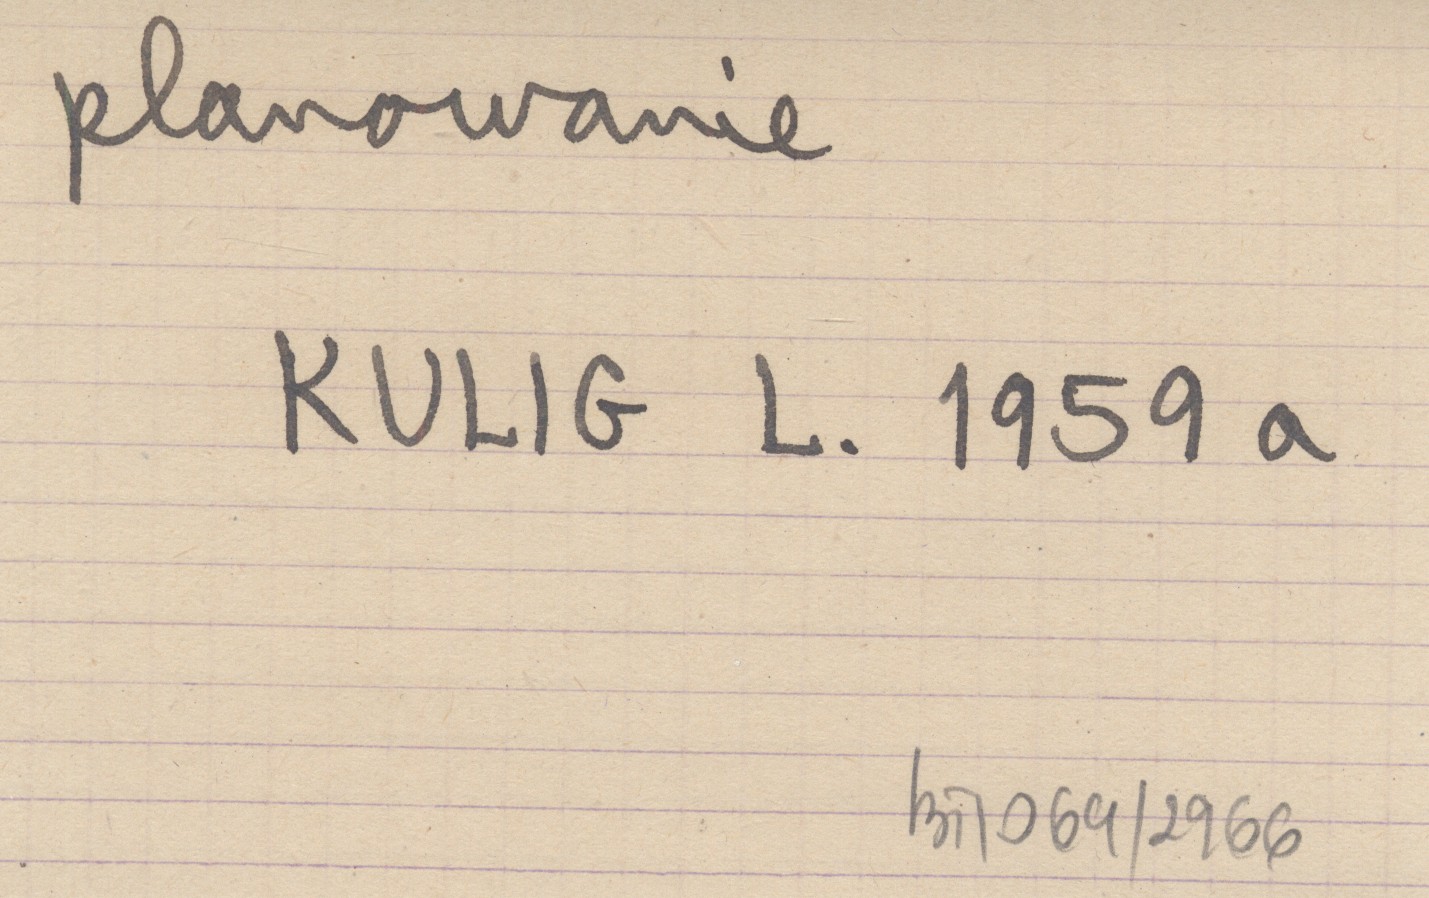 planowanie
KULIG L. 1959 a
069/2966